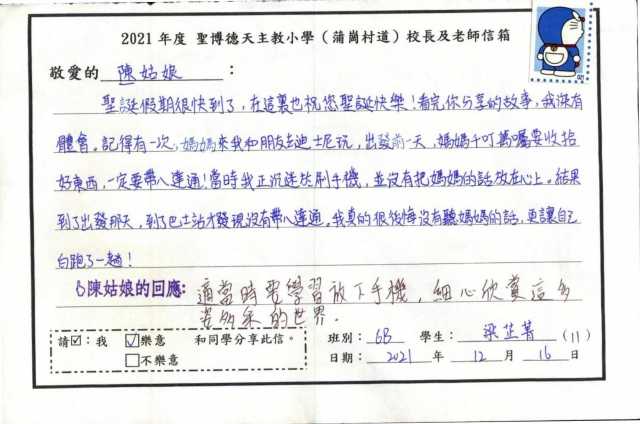 2021 年度 聖博德天主教小學（蒲崗村道）校長及老師信箱
敬愛的 陳姑娘 ：
聖誕假期很快到了，在這裏也祝您聖誕快樂！看完你分享的故事，我深有
體會。記得有一次，媽媽來我和朋友去迪士尼玩，出發前一天，媽媽千叮萬囑要收拾
好東西，一定要帶八達通！當時我正沉迷於刷手機，並沒有把媽媽的話放在心上。結果
到了出發那天，到了巴士站才發現沒有帶八達通。我真的很後悔沒有聽媽媽的話，更讓自己
白跑了一趟！
陳姑娘的回應: 適當時要學習放下手機，細心欣賞這多
姿多采的世界。
請☑：我 ☑樂意 和同學分享此信。 班別： 6B 學生： 梁芷菁 (11)
□不樂意 日期： 2021 年 12 月 16 日